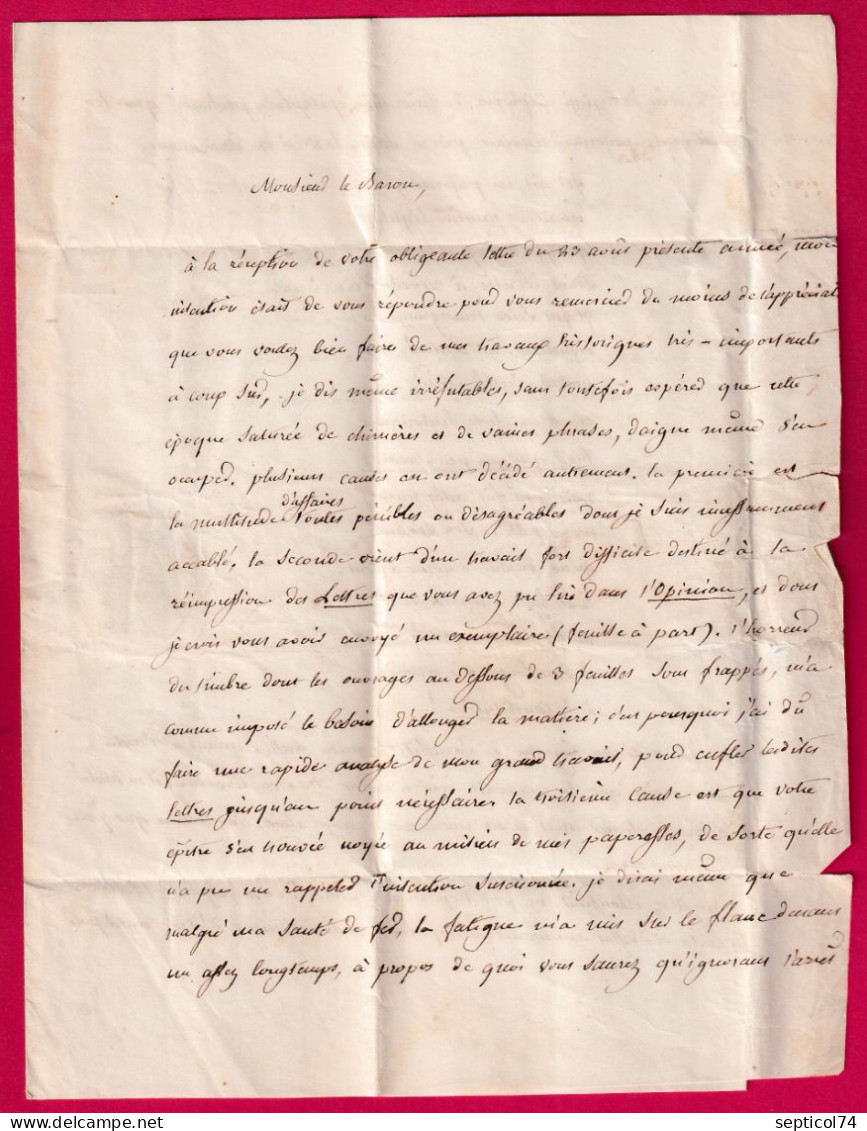 Monsieur le Baron,
à la réception de votre obligeante lettre du 23 août présente année, mon
intention était de vous répondre pour vous remercier du moins de l'appréciat.
que vous voulez bien faire de mes travaux historiques très-importants
à coup sûr, je dis même irréfutables, sans toutefois espérer que cette
époque saturée de chimères et de vaines phrases, daigne même s'en
occuper. plusieurs causes en ont décidé autrement. la première est
la multitude d'affaires toutes pénibles ou désagréables dont je suis incessamment
accablé. la seconde vient d'un travail fort difficile destiné à la
réimpression des Lettres que vous avez pu lire dans l'Opinion, et dont
je crois vous avoir envoyé un exemplaire (feuille à part). l'horreur
du timbre dont les ouvrages au dessous de 3 feuilles sont frappés, m'a
comme imposé le besoin d'allonger la matière; c'est pourquoi j'ai dû
faire une rapide analyse de mon grand travail, pour enfler lesdites
lettres jusqu'au point nécessaire. la troisième cause est que votre
épître s'est trouvée noyée au milieu de mes paperasses, de sorte qu'elle
n'a pu me rappeler l'intention susdite. je dirai même que
malgré ma santé de fer, la fatigue m'a mis sur le flanc durant
un assez longtemps, à propos de quoi vous saurez qu'ignorant l'arrêt
SEPTICOL74